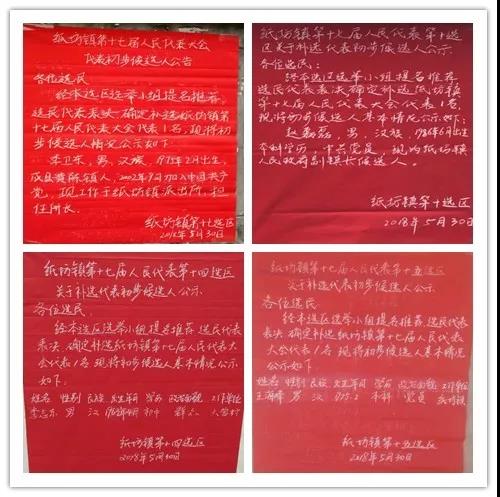 纸坊镇第十七届人民代表大会
代表初步候选人公告
各位选民
经本选区选举小组提名推荐,
选民代表表决,确定补选纸坊镇第
十七届人民代表大会代表1名,现将初
步候选人情况公示如下:
李卫东,男,汉族,1975年2月出生,
成县黄陈镇人,2002年9月加入中国共产
党,现工作于纸坊镇派出所,担
任所长.
纸坊镇第十选区
2018年5月30日
纸坊镇第十七届人民代表第十选
区关于补选代表初步候选人公示
各位选民:
经本选区选举小组提名推荐
选民代表表决,确定补选纸坊镇
第十七届人民代表大会代表1名,
现将初步候选人基本情况公示如下:
赵磊磊,男,汉族,1986年6月出生
本科学历,中共党员,现为纸坊镇
人民政府副镇长候选人.
纸坊镇第十选区
2018年5月30日
纸坊镇第十七届人民代表第十四选区
关于补选代表初步候选人公示
各位选民:
经本选区选举小组提名推荐,选民代表
表决,确定补选纸坊镇第十七届人民代表
大会代表1名,现将初步候选人基本情况公示
如下:
姓名 性别 民族 出生年月 学历 政治面貌 工作单位
男 汉 初中 群众
纸坊镇第十四选区
2018年5月30日
纸坊镇第十七届人民代表第十五选区
关于补选代表初步候选人公示
各位选民
经本选区选举小组提名推荐,选民代表
表决,确定补选纸坊镇第十七届人民代表
大会代表1名,现将初步候选人基本情况
公示如下:
姓名 性别 民族 出生年月 学历 政治面貌 工作单位
王海峰 男 汉 1975.2 本科 党员 纸坊镇
纸坊镇第十五选区
2018年5月30日